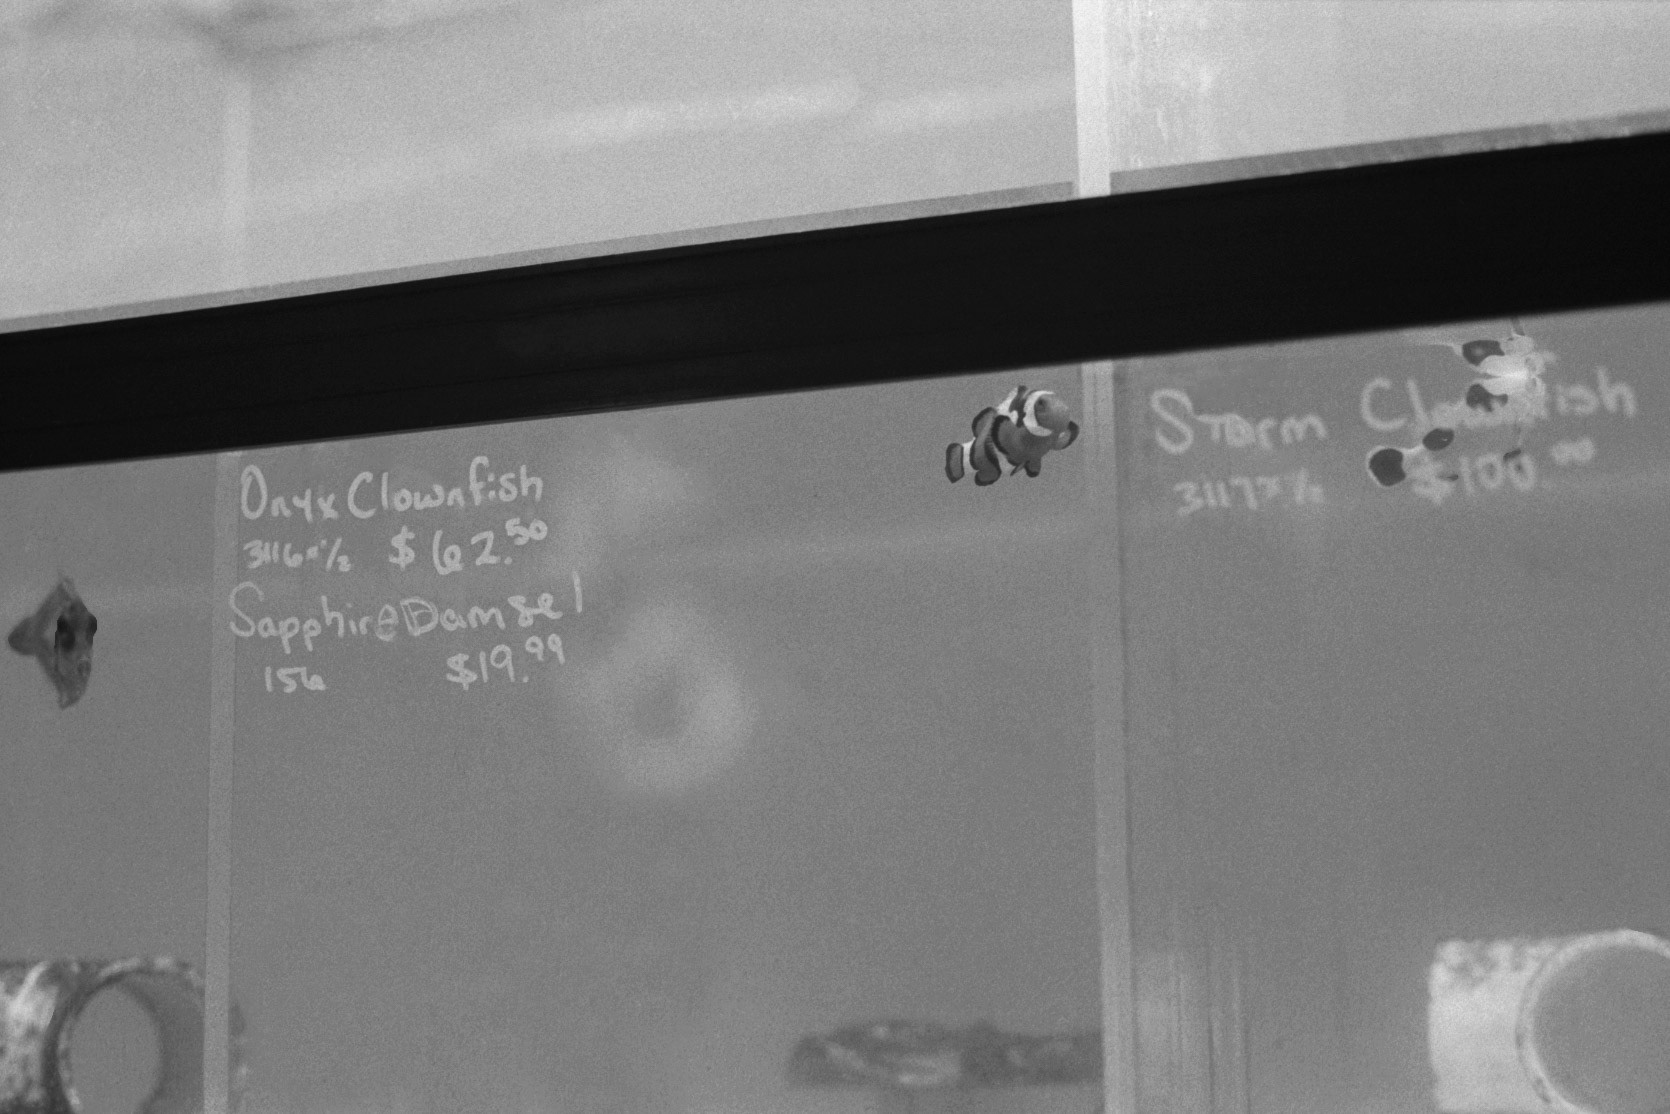 Onyx Clownfish
3116 x ½ $62.50
Sapphire Damsel
156 $19.99
Storm Clownfish
3117 x ½ $100.00